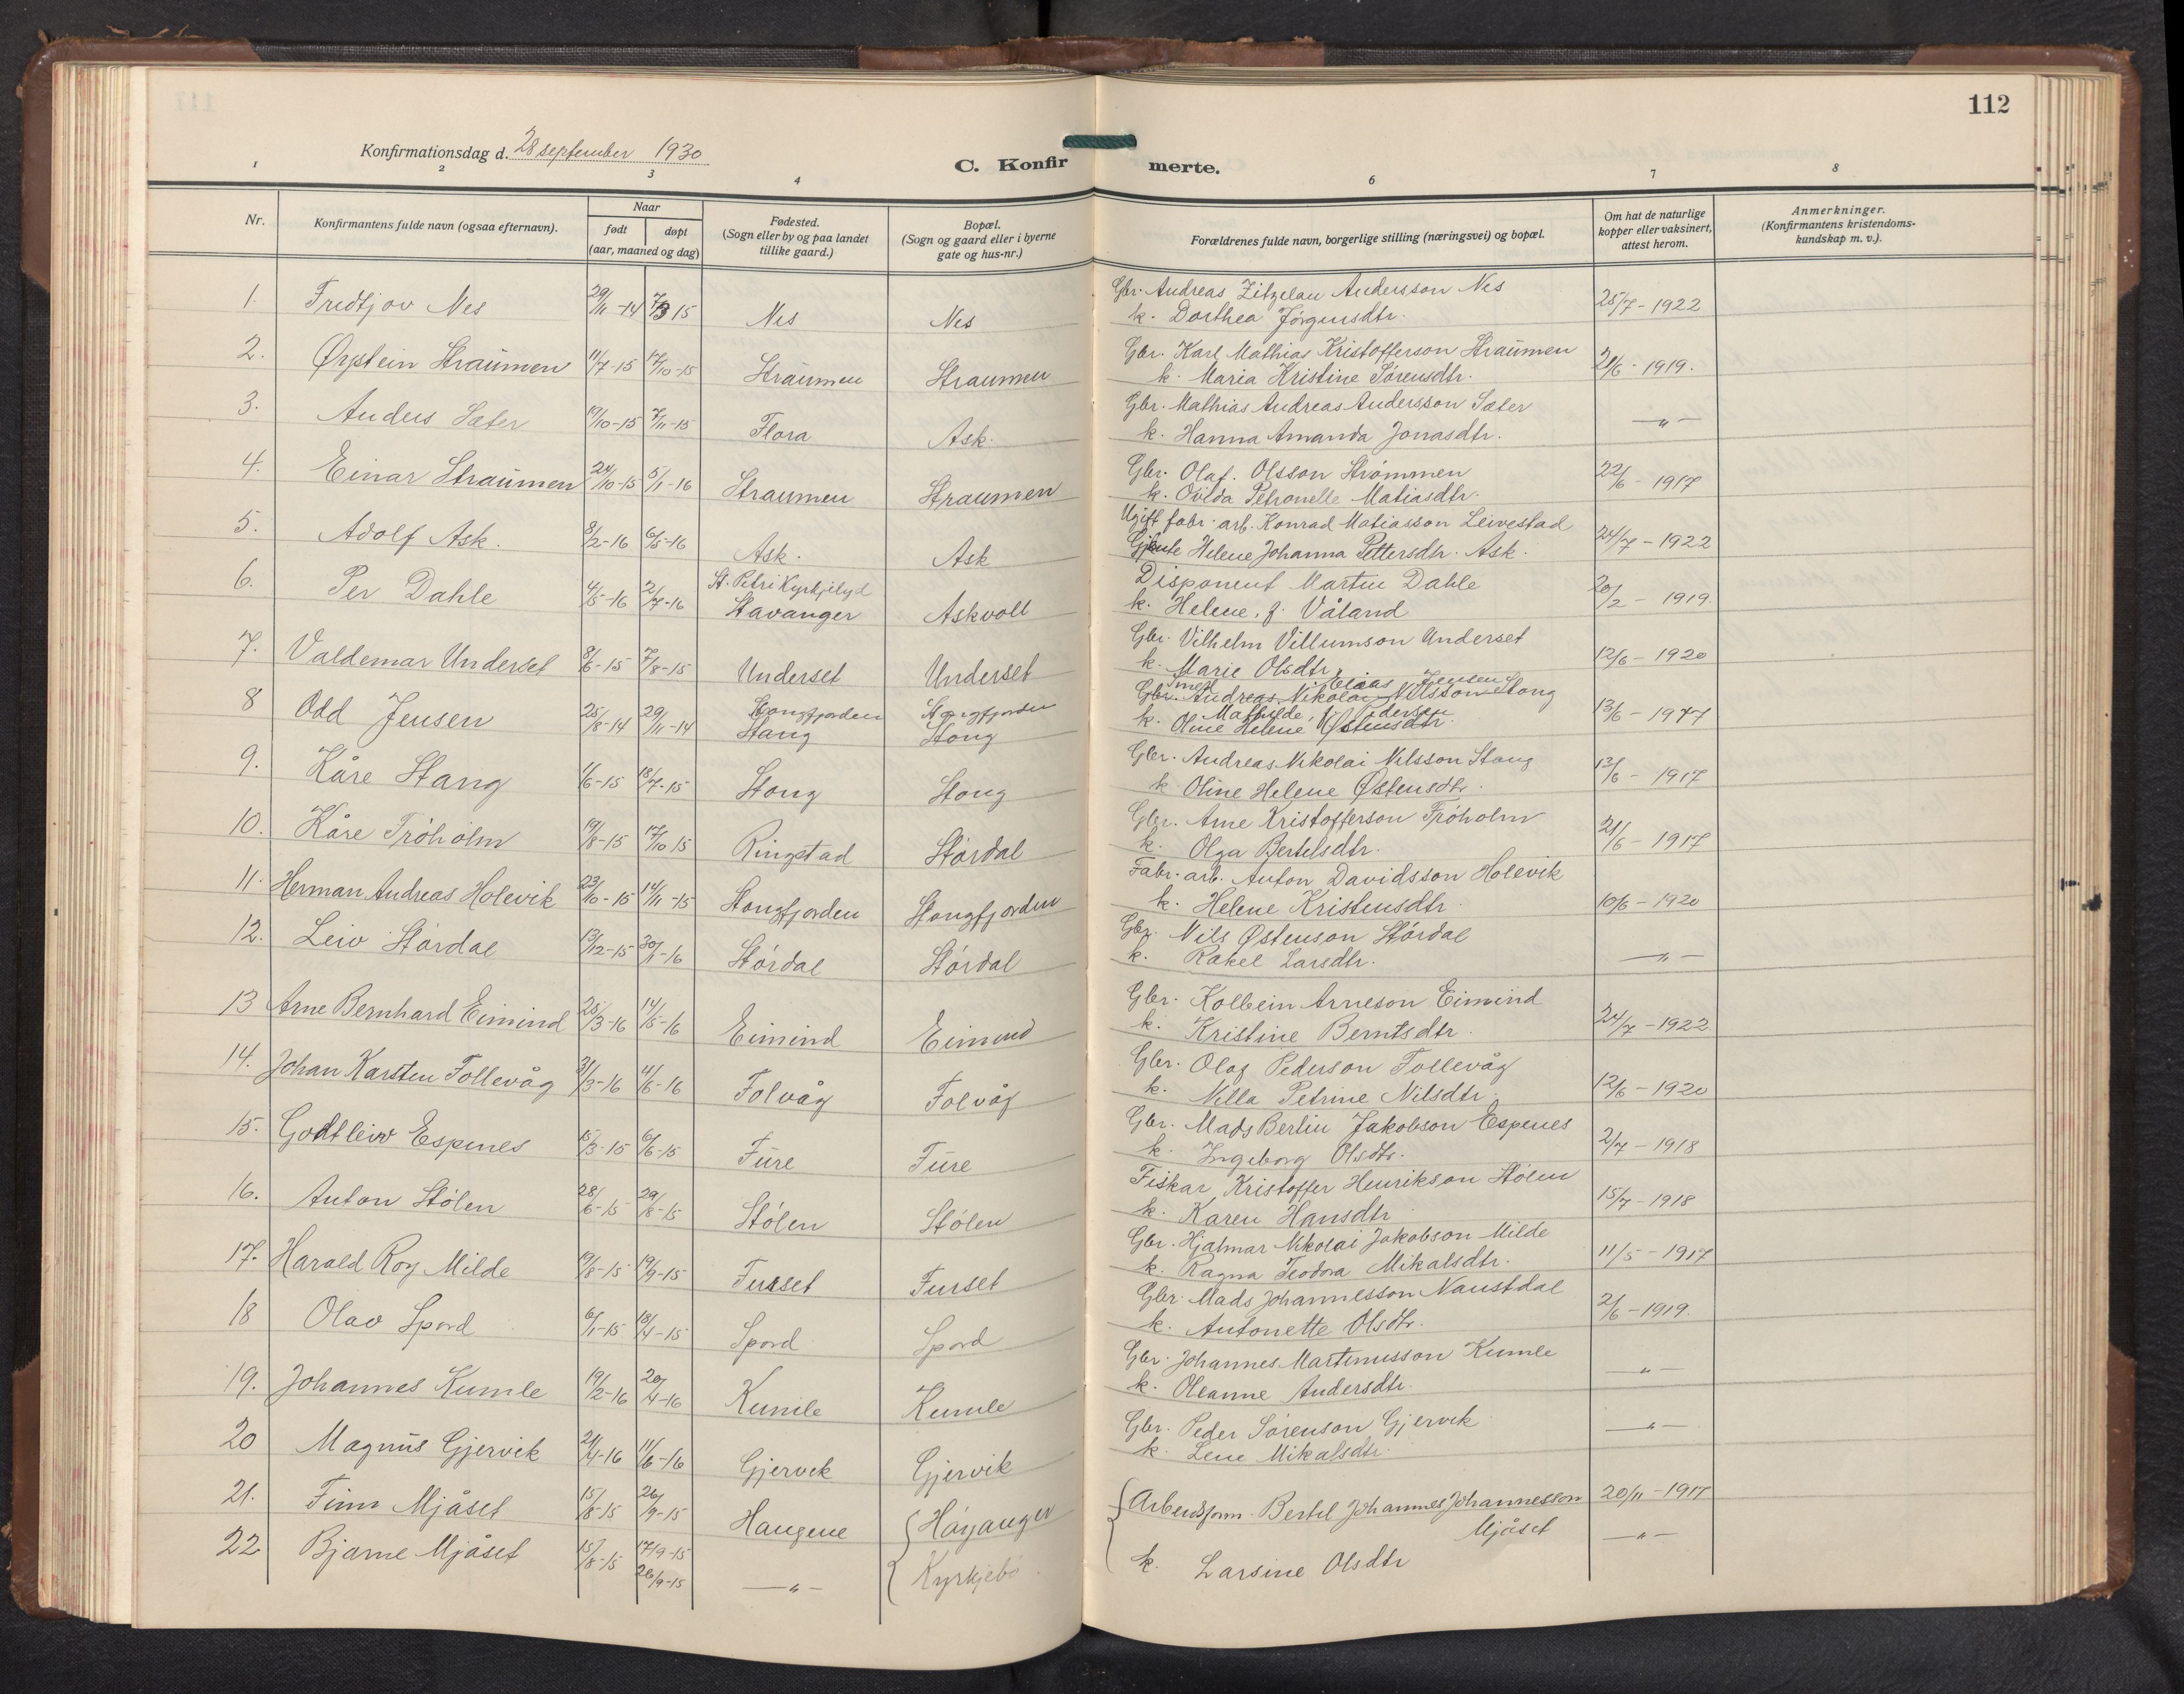 112
Konfirmationsdag d. 28 september 1930
C. Konfirmerte.
1 2 3 4 6 7 8
Nr.
Konfirmantens fulde navn (ogsaa efternavn).
Naar
født døpt
(aar, maaned og dag)
Fødested.
(Sogn eller by og paa landet
tillike gaard.)
Bopæl.
(Sogn og gaard eller i byerne
gate og hus-nr.)
Forældrenes fulde navn, borgerlige stilling (næringsvei) og bopæl.
Om hat de naturlige
kopper eller vaksinert,
attest herom.
Anmerkninger.
(Konfirmantens kristendoms-
kundskap m. v.).
1. Fredtjov Nes 29/11-14 7/3 15 Nes Nes Gbr. Andreas Zitzelau Andersson Nes 25/7-1922
k. Dorthea Jørgensdtr.
2. Øystein Straumen 11/7-15 17/10-15 Straumen Straumen Gbr. Karl Mathias Kristofferson Straumen 21/6-1919.
k. Maria Kristine Sørensdtr.
3. Anders Sæter 19/10-15 7/11-15 Flora Ask. Gbr. Mathias Andreas Andersson Sæter —"—
k. Hanna Amanda Jonasdtr.
4. Einar Straumen 24/10-15 5/1-16 Straumen Straumen Gbr. Olaf. Olsson Strømmen 22/6-1917
k. Ovida Petronelle Matiasdtr.
5. Adolf Ask. 8/2-16 6/5-16 Ask. Ask Ugift fabr. arb. Konrad Matiasson Leivestad 24/7-1922
Gjente Helene Johanna Pettersdtr. Ask.
6. Per Dahle 4/5-16 2/7-16 St. Petri Kyrkjelyd Stavanger Askvoll Disponent Martin Dahle 20/2-1919.
k. Helene, f. Våland
7. Valdemar Underset 8/6-15 7/8-15 Underset Underset Gbr. Vilhelm Villumson Underset 12/6-1920
k. Marie Olsdtr.
8 Odd Jensen 25/8-14 29/11-14 Stongfjorden Stang Stongfjorden Stong Elias Jensen
Gbr. Andreas Nikolai Nilsson Stong 13/6-1917
Mathilde, Pedersen
k. Oline Helene Østensdtr.
9. Kåre Stang 1/6-15 18/7-15 Stong Stong Gbr. Andreas Nikolai Nilsson Stong 13/6-1917
k Oline Helene Østensdtr.
10. Kåre Frøholm 19/8-15 17/10 15 Ringstad Stårdal Gbr. Arne Kristofferson Frøholm 21/6-1917
k. Olga Bertelsdtr.
11. Herman Andreas Holevik 23/10-15 14/11-15 Stongfjorden Stongfjorden Fabr. arb. Anton Davidsson Holevik 10/6-1920
k. Helene Kristensdtr.
12. Leiv Stårdal 13/12-15 30/1-16 Stårdal Stårdal Gbr. Nils Østenson Stårdal —"—
k. Rakel Larsdtr.
13 Arne Bernhard Eimind 25/3-16 14/5-16 Eimind Eimind Gbr. Kolbein Arneson Eimind 24/7-1922
k. Kristine Berntsdtr.
14. Johan Karsten Follevåg 31/3-16 4/6-16 Folvåg Folvåg Gbr. Olaf Pederson Follevåg 12/6-1920
k. Nilla Petrine Nilsdtr.
15. Godtleiv Espenes 15/3-15 6/6-15 Fure Fure Gbr. Mads Berlin Jakobson Espenes 2/7-1918
k. Ingeborg Olsdtr.
16. Anton Stølen 28/6-15 29/8-15 Stølen Stølen Fiskar Kristoffer Henrikson Stølen 15/7-1918
k. Karen Hansdtr
17. Harald Roy Milde 19/8-15 19/9-15 Furset Furset Gbr. Hjalmar Nikolai Jakobson Milde 11/5-1917
k. Ragna Teodora Mikalsdtr.
18 Olav Spord 6/1-15 18/4-15 Spord Spord Gbr. Mads Johannesson Naustdal 2/6-1919.
k. Antonette Olsdtr.
19. Johannes Kumle 19/2-16 20/4-16 Kumle Kumle Gbr. Johannes Martinusson Kumle —"—
k. Oleanne Andersdtr.
20 Magnus Gjervik 21/4-16 11/6-16 Gjervik Gjervik Gbr. Peder Sørenson Gjervik —"—
k. Lene Mikalsdtr.
21. Finn Mjåset 15/8-15 26/9-15 Haugene Høyanger Arbeidsform. Bertel Johannes Johannesson 20/11-1917
Mjåset
22. Bjarne Mjåset 15/8-15 17/9-15 26/9-15 —"— Kyrkjebø. —"—
k. Larsine Olsdtr